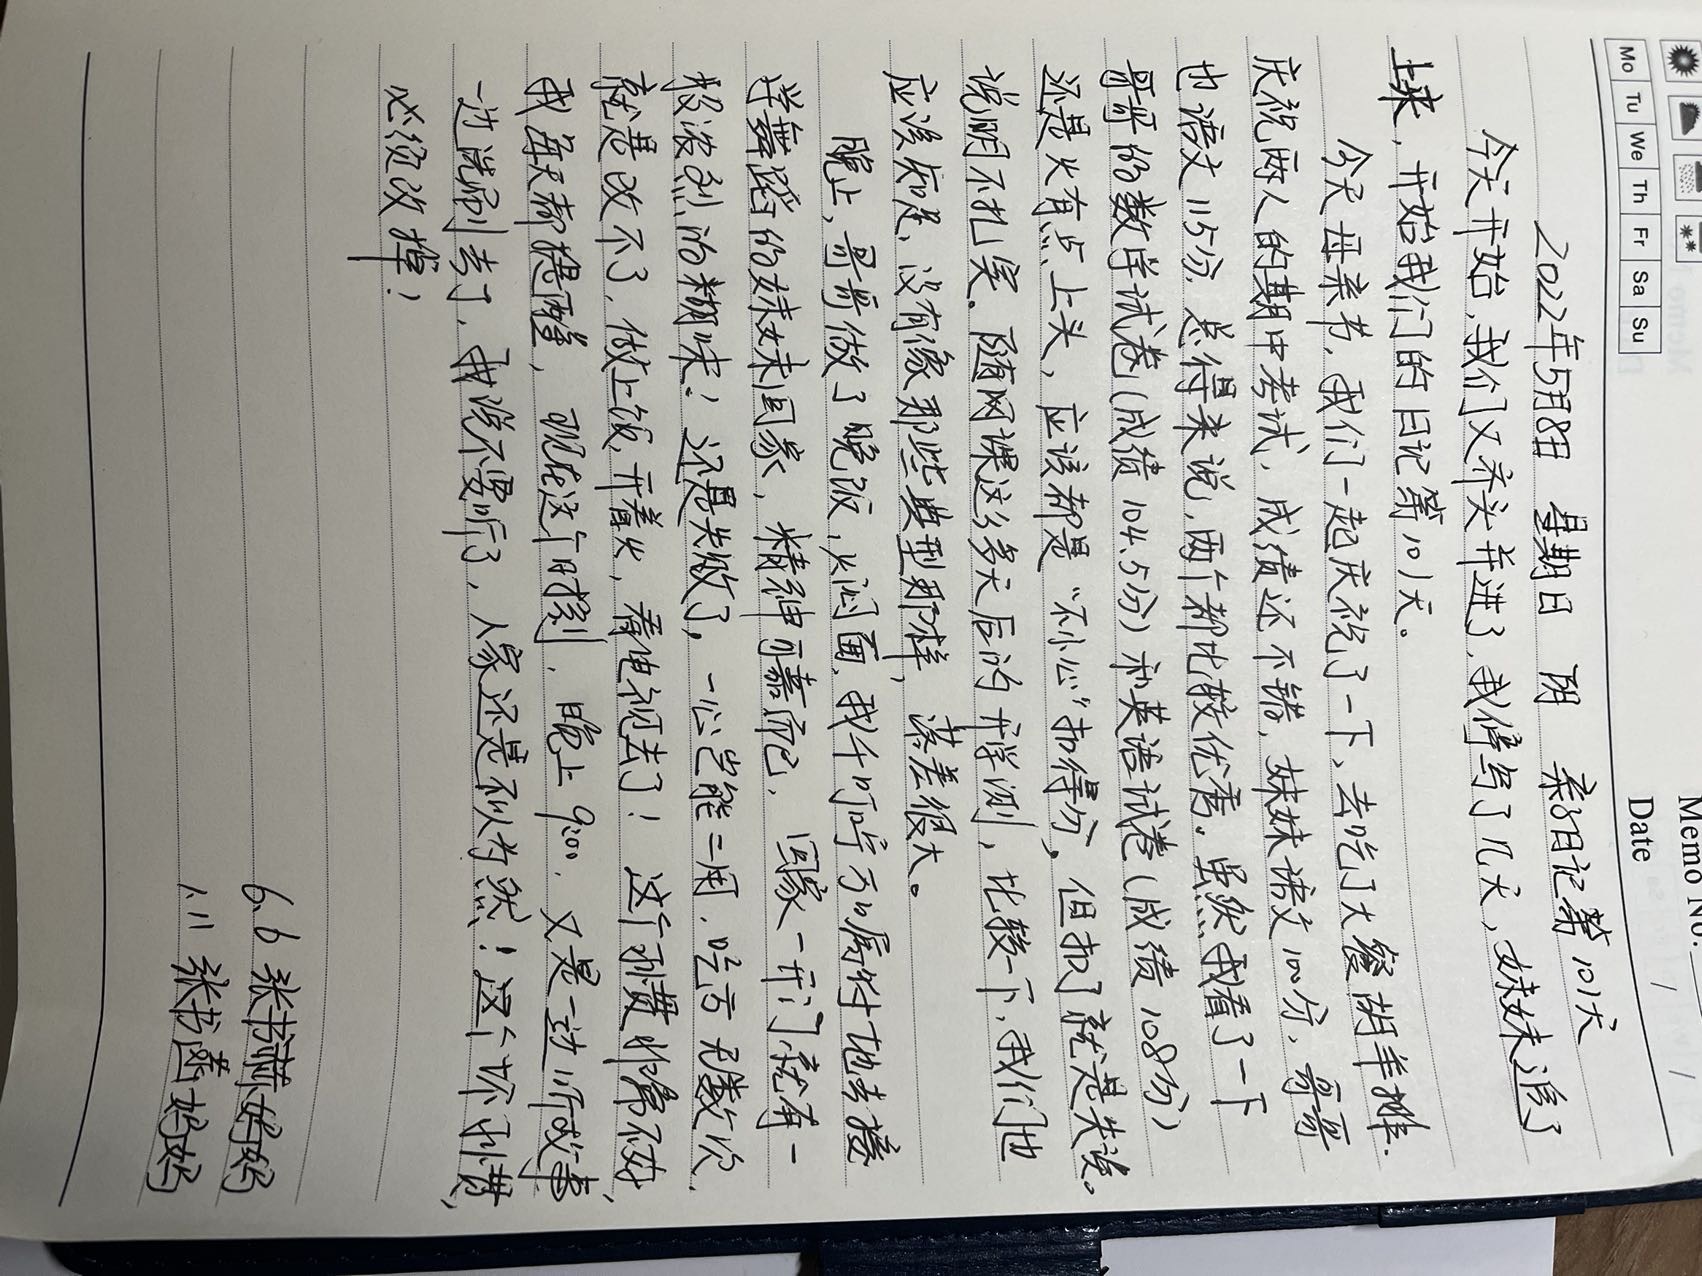 Memo No.
Mo Tu We Th Fr Sa Su
Date / /
2022年5月8日 星期日 阴 亲子日记第101天
今天开始,我们又齐头并进了,我停写了几天,妹妹追了
上来,开始我们的日记第101天。
今天母亲节,我们一起庆祝了一下,去吃了大餐胡羊排.
庆祝两人的期中考试,成绩还不错,妹妹语文100分,哥哥
也语文115分,总得来说,两个都比较优秀。虽然我看了一下
哥哥的数学试卷(成绩104.5分)和英语试卷(成绩108分)
还是火有点上头,应该都是“不小心”扣得分,但扣了就是失误。
说明不扎实。随网课这么多天后的开学测,比较一下,我们也
应该知足,没有像那些典型那样,落差很大。
晚上,哥哥做了晚饭,火闷面,我千叮咛万嘱咐地去接
学舞蹈的妹妹回家,精神可嘉而已,回家一开门就有一
股浓烈的糊味!还是失败了,一心岂能二用,吃亏无数次,
就是改不了,做上饭,开着火,看电视去了!这个习惯非常不好,
我每天都提醒,现在这个时刻,晚上9:00,又是一边听故事
一边洗刷去了,我说不要听了,人家还是不以为然!这个坏习惯,
必须改掉!
6.6 张书赫妈妈
1.11 张书菡妈妈